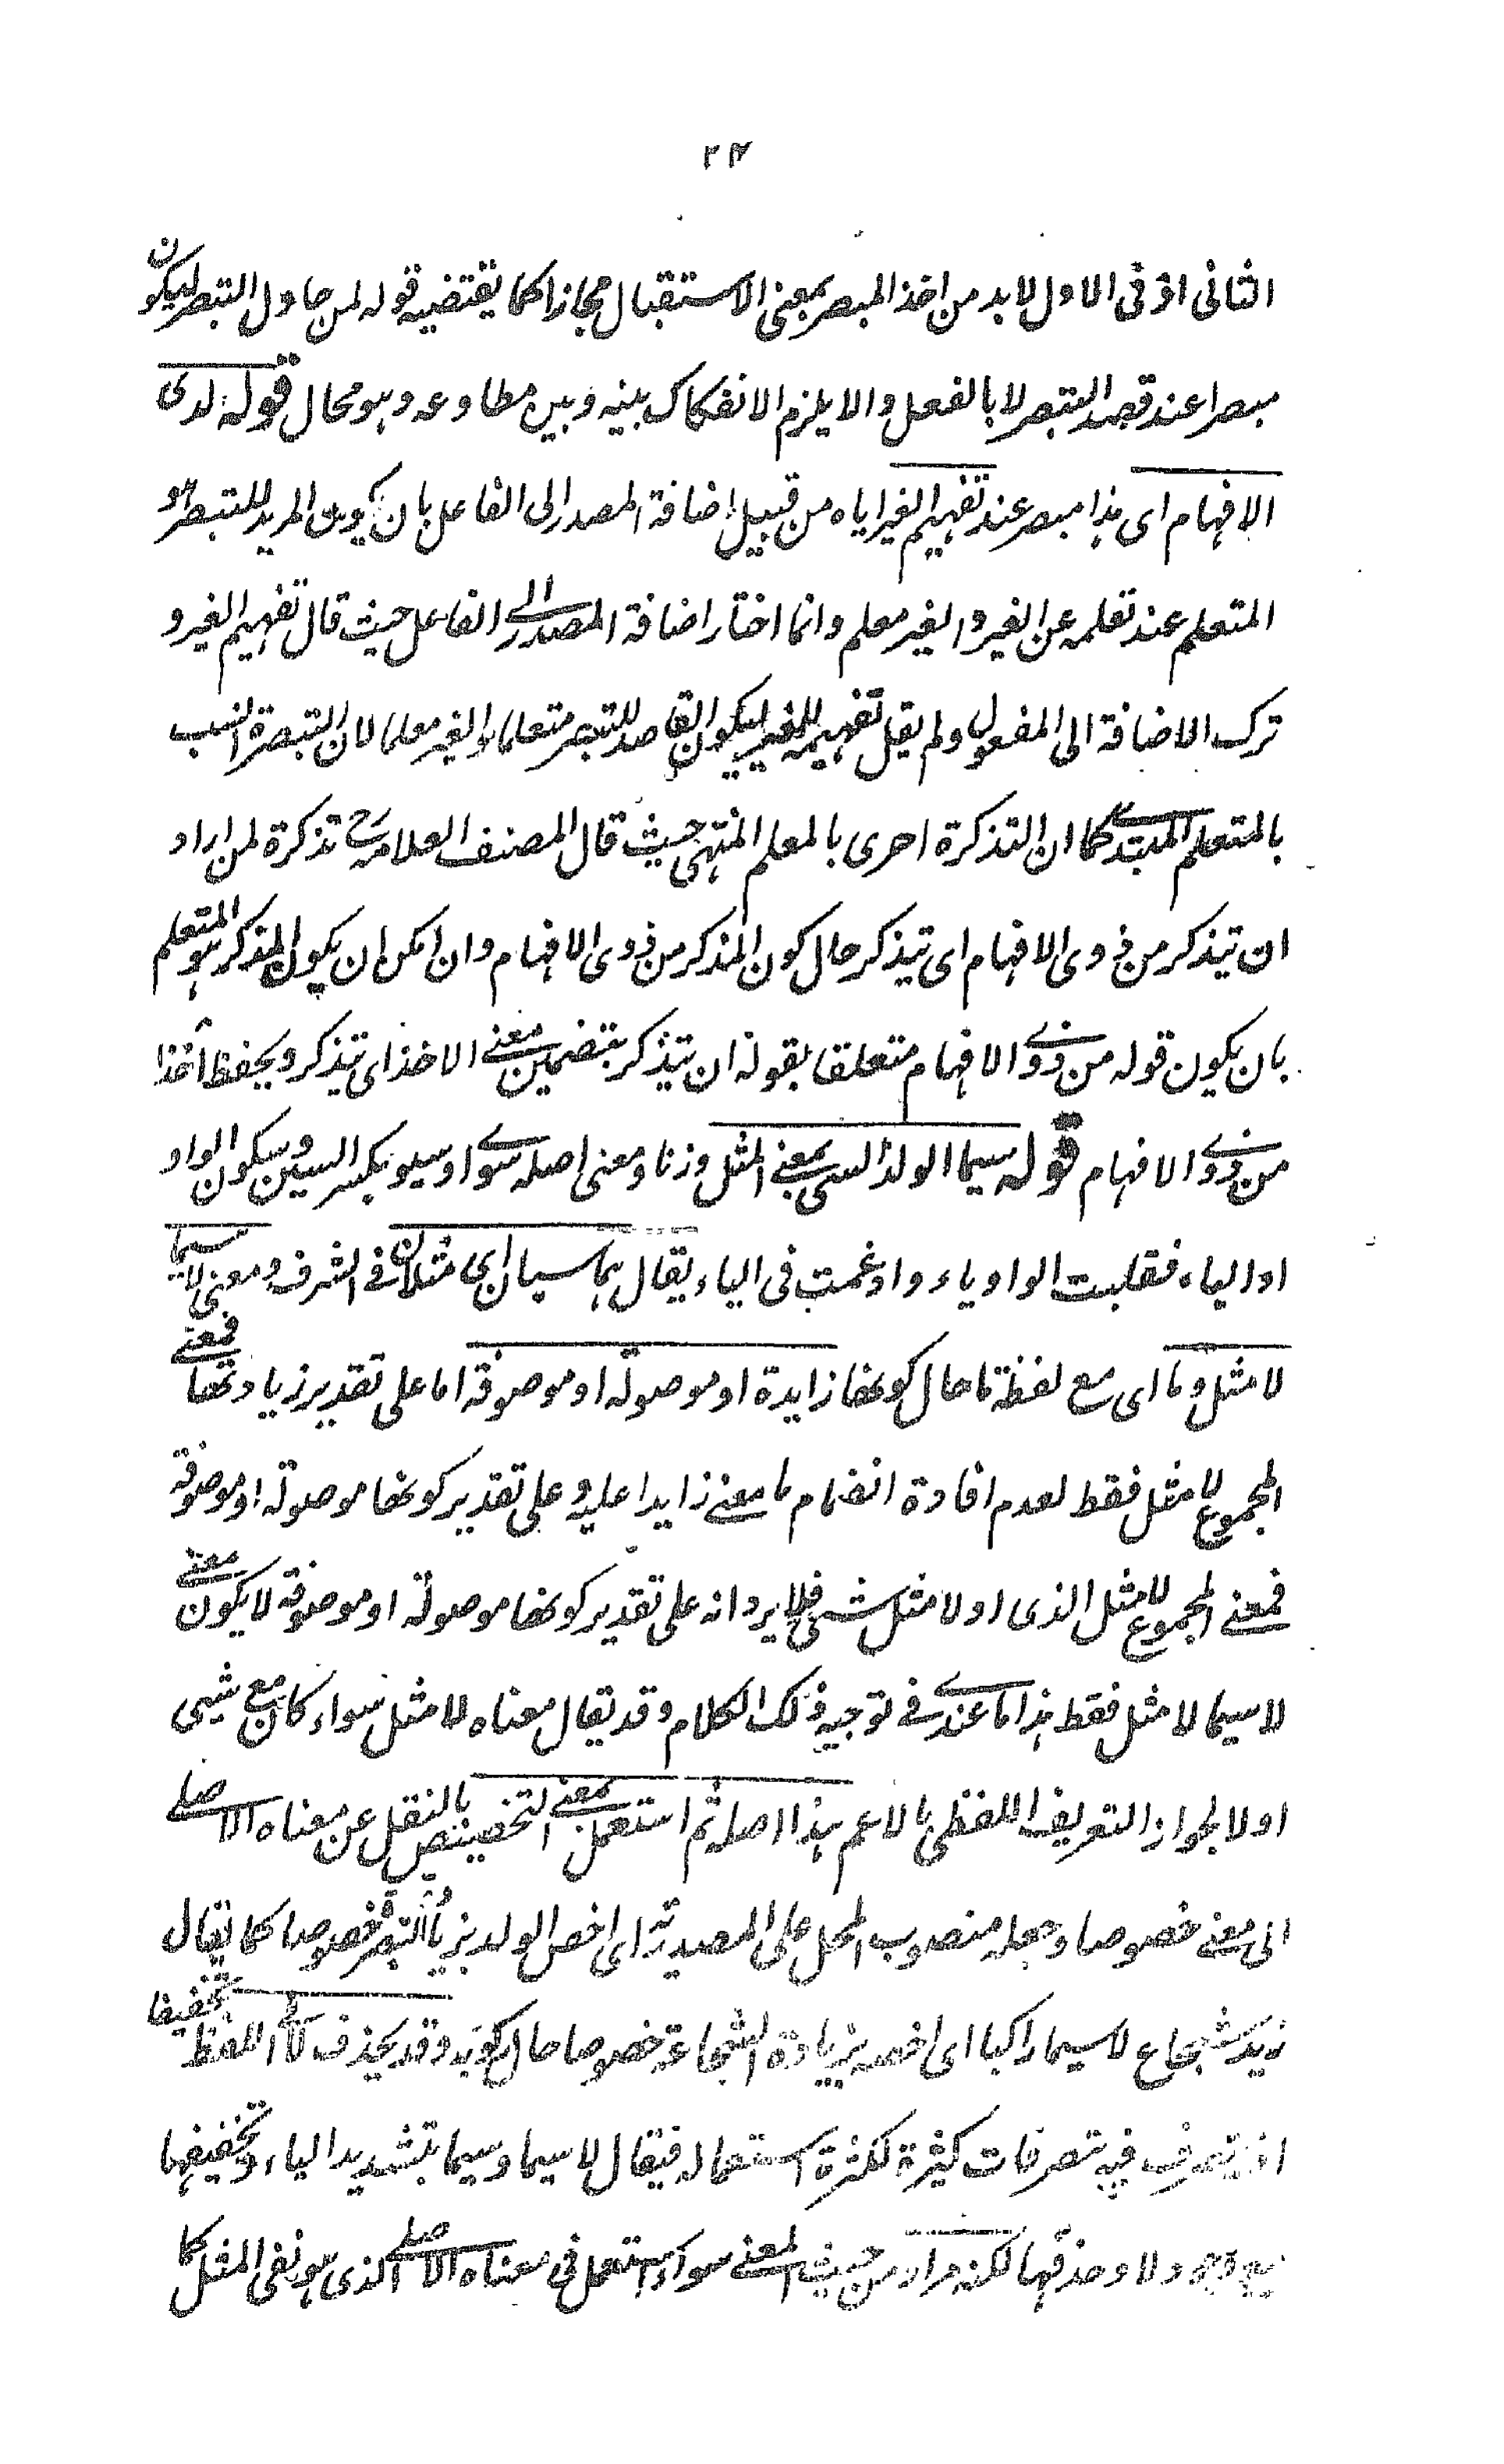 ٢٧
الثانى اذ فى الاول لا بد من اخذ المبصر بمعنى الاستقبال مجازا كما يقتضيه قوله لمن حاول التبصر ليكون
مبصرا عند قصد التبصر لا بالفعل والا يلزم الانفكاك بينه وبين مطاوعه وهو محال قوله لدى
الافهام اى هذا مبصر عند تفهيم الغير اياه من قبيل اضافة المصدر الى الفاعل بان يكون المريد للتبصر هو
المتعلم عند تعلمه عن الغير والغير معلم وانما اختار اضافة المصدر الى الفاعل حيث قال تفهيم الغير و
ترك الاضافة الى المفعول ولم يقل تفهيمه للغير ليكون القاصد للتبصر متعلما والغير معلما لان التبصرة انسب
بالمتعلم المبتدى كما ان التذكرة احرى بالمعلم المنتهى حيث قال المصنف العلامة رح تذكرة لمن اراد
ان يتذكر من ذوى الافهام اى يتذكر حال كون المذكر من ذوى الافهام وان امكن ان يكون المذكر هو المتعلم
بان يكون قوله من ذوى الافهام متعلقا بقوله ان يتذكر بتضمين معنى الاخذ اى يتذكر ويحفظ آخذا
من ذوى الافهام قوله سيما الولد السى بمعنى المثل وزنا ومعنى اصله سوى او سيو بكسر السين وسكون الواو
او الياء فقلبت الواو ياء وادغمت فى الياء يقال هما سيان اى مثلان فى الشرف ومعنى لا سيما
لا مثل وما اى مع لفظة ما حال كونها زايدة او موصولة او موصوفة اما على تقدير زيادتها فمعنى
المجموع لا مثل فقط لعدم افادة انضمام ما معنى زايدا عليه وعلى تقدير كونها موصولة او موصوفة
فمعنى المجموع لا مثل الذى او لا مثل شىء فلا يرد انه على تقدير كونها موصولة او موصوفة لا يكون معنى
لا سيما لا مثل فقط هذا ما عندى فى توجيه ذلك الكلام وقد يقال معناه لا مثل سواء كان مع شيى
او لا لجواز التعريف اللفظى بالاعم هذا اصله ثم استعمل بمعنى التخصيص بالنقل عن معناه الاصلى
الى معنى خصوصا وجعله منصوب المحل على المصدرية اى اخص الولد بزيادة التبصر خصوصا كما يقال
زيد شجاع لا سيما راكبا اى اخصه بزيادة الشجاعة خصوصا حال ركوبه وقد يحذف لا فى اللفظ تخفيفا
اذ يتصرف فيه تصرفات كثيرة لكثرة استعماله فيقال لا سيما وسيما بتشديد الياء وتخفيفها
مع وجود لا وحذفها لكنه مراد من حيث المعنى سواء استعمل فى معناه الاصلى الذى هو نفى المثل كما